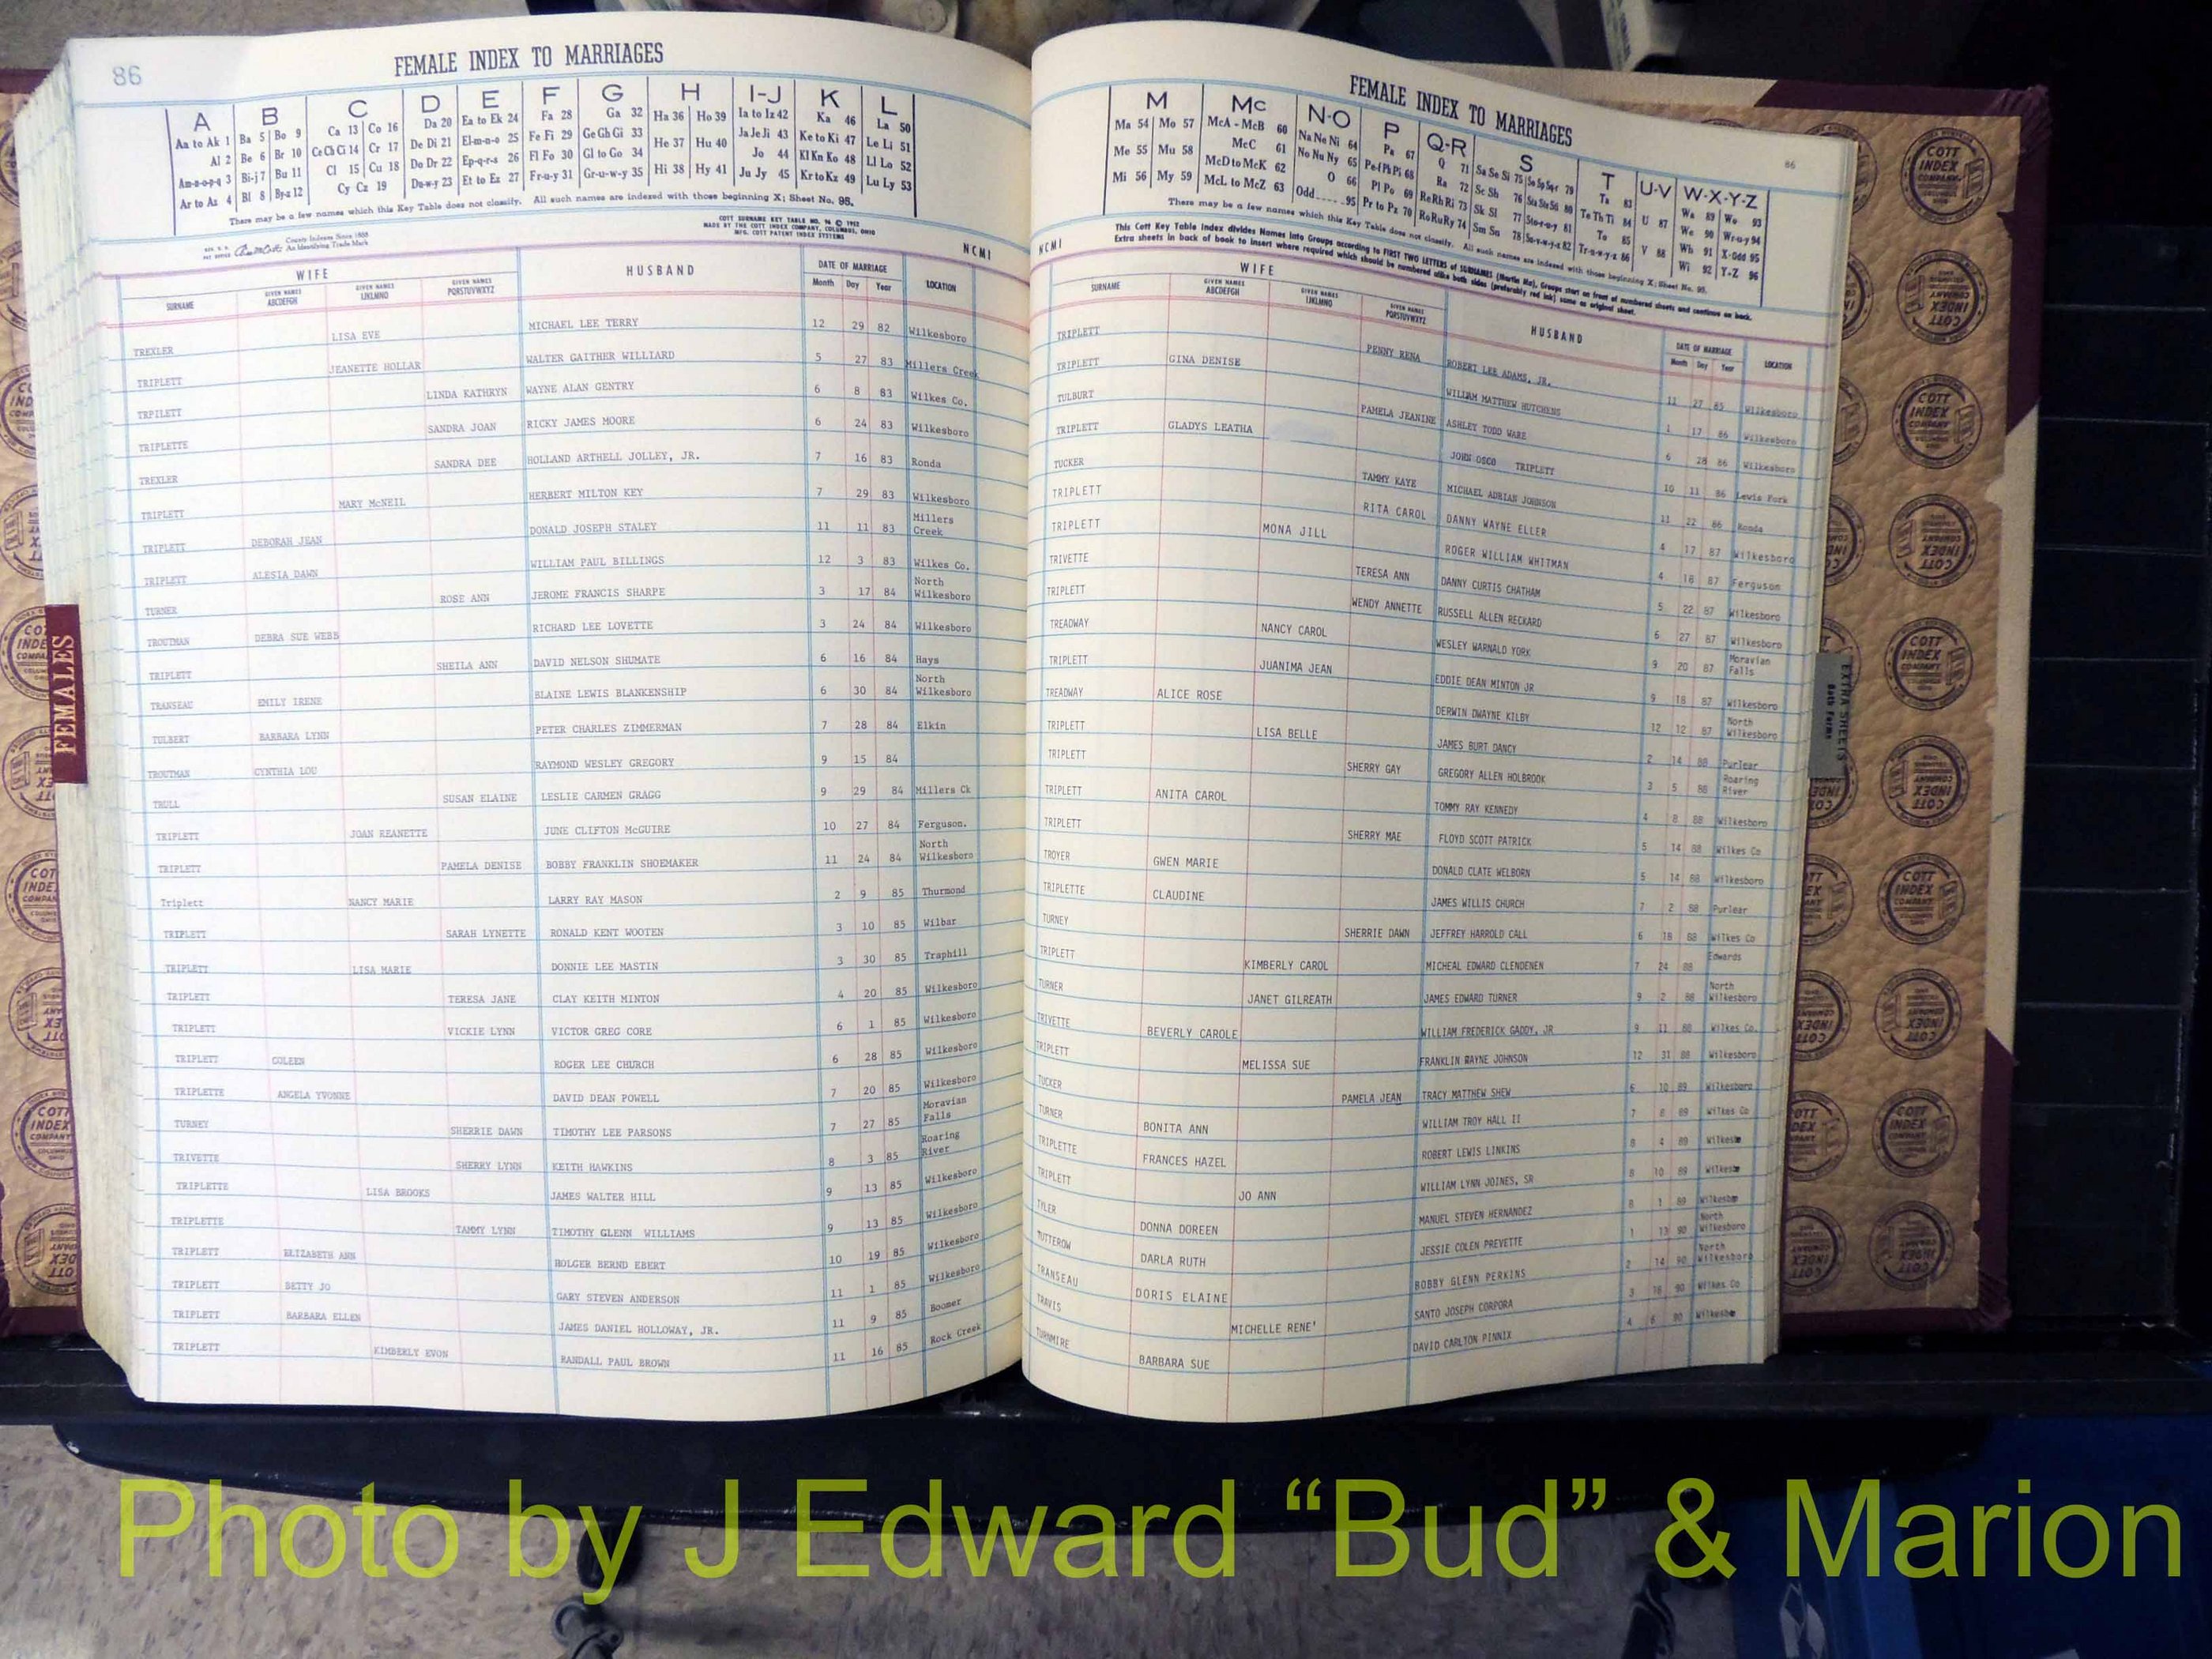 86
FEMALE INDEX TO MARRIAGES
A B C D E F G H I-J K L
Aa to Ak 1 Ba 5 Bo 9 Ca 13 Co 16 Da 20 Ea to Ek 24 Fa 28 Ga 32 Ha 36 Ho 39 Ia to Iz 42 Ka 46 La 50
Al 2 Be 6 Br 10 Ce Ch Ci 14 Cr 17 De Di 21 El-m-n-o 25 Fe Fi 29 Ge Gh Gi 33 He 37 Hu 40 Ja Je Ji 43 Ke to Ki 47 Le Li 51
Am-n-o-p-q 3 Bi-j 7 Bu 11 Cl 15 Cu 18 Do Dr 22 Ep-q-r-s 26 Fl Fo 30 Gl to Go 34 Hi 38 Hy 41 Jo 44 Kl Kn Ko 48 Ll Lo 52
Ar to Az 4 Bl 8 By-z 12 Cy Cz 19 Du-w-y 23 Et to Ez 27 Fr-u-y 31 Gr-u-w-y 35 Ju Jy 45 Kr to Kz 49 Lu Ly 53
There may be a few names which this Key Table does not classify. All such names are indexed with those beginning X; Sheet No. 95.
County Indexes Since 1888
An Identifying Trade Mark
MADE BY THE COTT INDEX COMPANY, COLUMBUS, OHIO
MFG. COTT PATENT INDEX SYSTEMS
NCMI
WIFE HUSBAND DATE OF MARRIAGE LOCATION
SURNAME GIVEN NAMES ABCDEFGH GIVEN NAMES IJKLMNO GIVEN NAMES PQRSTUVWXYZ Month Day Year
TREXLER LISA EVE MICHAEL LEE TERRY 12 29 82 Wilkesboro
TRIPLETT JEANETTE HOLLAR WALTER GAITHER WILLIARD 5 27 83 Millers Creek
TRPILETT LINDA KATHRYN WAYNE ALAN GENTRY 6 8 83 Wilkes Co.
TRIPLETTE SANDRA JOAN RICKY JAMES MOORE 6 24 83 Wilkesboro
TREXLER SANDRA DEE HOLLAND ARTHELL JOLLEY, JR. 7 16 83 Ronda
TRIPLETT MARY McNEIL HERBERT MILTON KEY 7 29 83 Wilkesboro
TRIPLETT DEBORAH JEAN DONALD JOSEPH STALEY 11 11 83 Millers Creek
TRIPLETT ALESIA DAWN WILLIAM PAUL BILLINGS 12 3 83 Wilkes Co.
TURNER ROSE ANN JEROME FRANCIS SHARPE 3 17 84 North Wilkesboro
TROUTMAN DEBRA SUE WEBB RICHARD LEE LOVETTE 3 24 84 Wilkesboro
TRIPLETT SHEILA ANN DAVID NELSON SHUMATE 6 16 84 Hays
TRANSEAU EMILY IRENE BLAINE LEWIS BLANKENSHIP 6 30 84 North Wilkesboro
TULBERT BARBARA LYNN PETER CHARLES ZIMMERMAN 7 28 84 Elkin
TROUTMAN CYNTHIA LOU RAYMOND WESLEY GREGORY 9 15 84
TRULL SUSAN ELAINE LESLIE CARMEN GRAGG 9 29 84 Millers Ck
TRIPLETT JOAN REANETTE JUNE CLIFTON McGUIRE 10 27 84 Ferguson.
TRIPLETT PAMELA DENISE BOBBY FRANKLIN SHOEMAKER 11 24 84 North Wilkesboro
Triplett NANCY MARIE LARRY RAY MASON 2 9 85 Thurmond
TRIPLETT SARAH LYNETTE RONALD KENT WOOTEN 3 10 85 Wilbar
TRIPLETT LISA MARIE DONNIE LEE MASTIN 3 30 85 Traphill
TRIPLETT TERESA JANE CLAY KEITH MINTON 4 20 85 Wilkesboro
TRIPLETT VICKIE LYNN VICTOR GREG CORE 6 1 85 Wilkesboro
TRIPLETT COLEEN ROGER LEE CHURCH 6 28 85 Wilkesboro
TRIPLETTE ANGELA YVONNE DAVID DEAN POWELL 7 20 85 Wilkesboro
TURNEY SHERRIE DAWN TIMOTHY LEE PARSONS 7 27 85 Moravian Falls
TRIVETTE SHERRY LYNN KEITH HAWKINS 8 3 85 Roaring River
TRIPLETTE LISA BROOKS JAMES WALTER HILL 9 13 85 Wilkesboro
TRIPLETTE TAMMY LYNN TIMOTHY GLENN WILLIAMS 9 13 85 Wilkesboro
TRIPLETT ELIZABETH ANN HOLGER BERND EBERT 10 19 85 Wilkesboro
TRIPLETT BETTY JO GARY STEVEN ANDERSON 11 1 85 Wilkesboro
TRIPLETT BARBARA ELLEN JAMES DANIEL HOLLOWAY, JR. 11 9 85 Boomer
TRIPLETT KIMBERLY EVON RANDALL PAUL BROWN 11 16 85 Rock Creek
FEMALES
FEMALE INDEX TO MARRIAGES
86
M Mc N-O P Q-R S T U-V W-X-Y-Z
Ma 54 Mo 57 McA - McB 60 Na Ne Ni 64 Pa 67 Q 71 Sa Se Si 75 Ta 83 Wa 89 Wo 93
Me 55 Mu 58 McC 61 No Nu Ny 65 Pe-f Ph Pi 68 Ra 72 Sc Sh 76 Te Th Ti 84 U 87 We 90 Wr-u-y 94
Mi 56 My 59 McD to McK 62 O 66 Pl Po 69 Re Rh Ri 73 Sk Sl 77 To 85 V 88 Wh 91 X-Odd 95
McL to McZ 63 Odd 95 Pr to Pz 70 Ro Ru Ry 74 Sm Sn 78 Tr-u-w-y-z 86 Wi 92 Y-Z 96
There may be a few names which this Key Table does not classify. All such names are indexed with those beginning X; Sheet No. 95.
This Cott Key Table Index divides Names into Groups according to FIRST TWO LETTERS of SURNAMES (Martin Ma). Groups start on front of numbered sheets and continue on back.
Extra sheets in back of book to insert where required which should be numbered alike both sides (preferably red ink) same as original sheet.
NCMI
WIFE HUSBAND DATE OF MARRIAGE LOCATION
SURNAME GIVEN NAMES ABCDEFGH GIVEN NAMES IJKLMNO GIVEN NAMES PQRSTUVWXYZ Month Day Year
TRIPLETT PENNY RENA ROBERT LEE ADAMS, JR. 11 27 85 Wilkesboro
TRIPLETT GINA DENISE WILLIAM MATTHEW HUTCHENS 1 17 86 Wilkesboro
TULBURT PAMELA JEANINE ASHLEY TODD WARE 6 28 86 Wilkesboro
TRIPLETT GLADYS LEATHA JOHN OSCO TRIPLETT 10 11 86 Lewis Fork
TUCKER TAMMY KAYE MICHAEL ADRIAN JOHNSON 11 22 86 Ronda
TRIPLETT RITA CAROL DANNY WAYNE ELLER 4 17 87 Wilkesboro
TRIPLETT MONA JILL ROGER WILLIAM WHITMAN 4 18 87 Ferguson
TRIVETTE TERESA ANN DANNY CURTIS CHATHAM 5 22 87 Wilkesboro
TRIPLETT WENDY ANNETTE RUSSELL ALLEN RECKARD 6 27 87 Wilkesboro
TREADWAY NANCY CAROL WESLEY WARNALD YORK 9 20 87 Moravian Falls
TRIPLETT JUANIMA JEAN EDDIE DEAN MINTON JR 9 18 87 Wilkesboro
TREADWAY ALICE ROSE DERWIN DWAYNE KILBY 12 12 87 North Wilkesboro
TRIPLETT LISA BELLE JAMES BURT DANCY 2 14 88 Purlear
TRIPLETT SHERRY GAY GREGORY ALLEN HOLBROOK 3 5 88 Roaring River
TRIPLETT ANITA CAROL TOMMY RAY KENNEDY 4 8 88 Wilkesboro
TRIPLETT SHERRY MAE FLOYD SCOTT PATRICK 5 14 88 Wilkes Co
TROYER GWEN MARIE DONALD CLATE WELBORN 5 14 88 Wilkesboro
TRIPLETTE CLAUDINE JAMES WILLIS CHURCH 7 2 88 Purlear
TURNEY SHERRIE DAWN JEFFREY HARROLD CALL 6 18 88 Wilkes Co
TRIPLETT KIMBERLY CAROL MICHEAL EDWARD CLENDENEN 7 24 88 Edwards
TURNER JANET GILREATH JAMES EDWARD TURNER 9 2 88 North Wilkesboro
TRIVETTE BEVERLY CAROLE WILLIAM FREDERICK GADDY, JR 9 11 88 Wilkes Co.
TRIPLETT MELISSA SUE FRANKLIN WAYNE JOHNSON 12 31 88 Wilkesboro
TUCKER PAMELA JEAN TRACY MATTHEW SHEW 6 10 89 Wilkesboro
TURNER BONITA ANN WILLIAM TROY HALL II 7 8 89 Wilkes Co
TRIPLETTE FRANCES HAZEL ROBERT LEWIS LINKINS 8 4 89
TRIPLETT JO ANN WILLIAM LYNN JOINES, SR 8 10 89
TYLER DONNA DOREEN MANUEL STEVEN HERNANDEZ 8 1 89
TUTTEROW DARLA RUTH JESSIE COLEN PREVETTE 1 13 90 North Wilkesboro
TRANSEAU DORIS ELAINE BOBBY GLENN PERKINS 2 14 90 North Wilkesboro
TRAVIS MICHELLE RENE' SANTO JOSEPH CORPORA 3 90 Wilkes Co
TURNMIRE BARBARA SUE DAVID CARLTON PINNIX 4 6 90
EXTRA SHEETS
COTT INDEX COMPANY
Photo by J Edward “Bud” & Marion